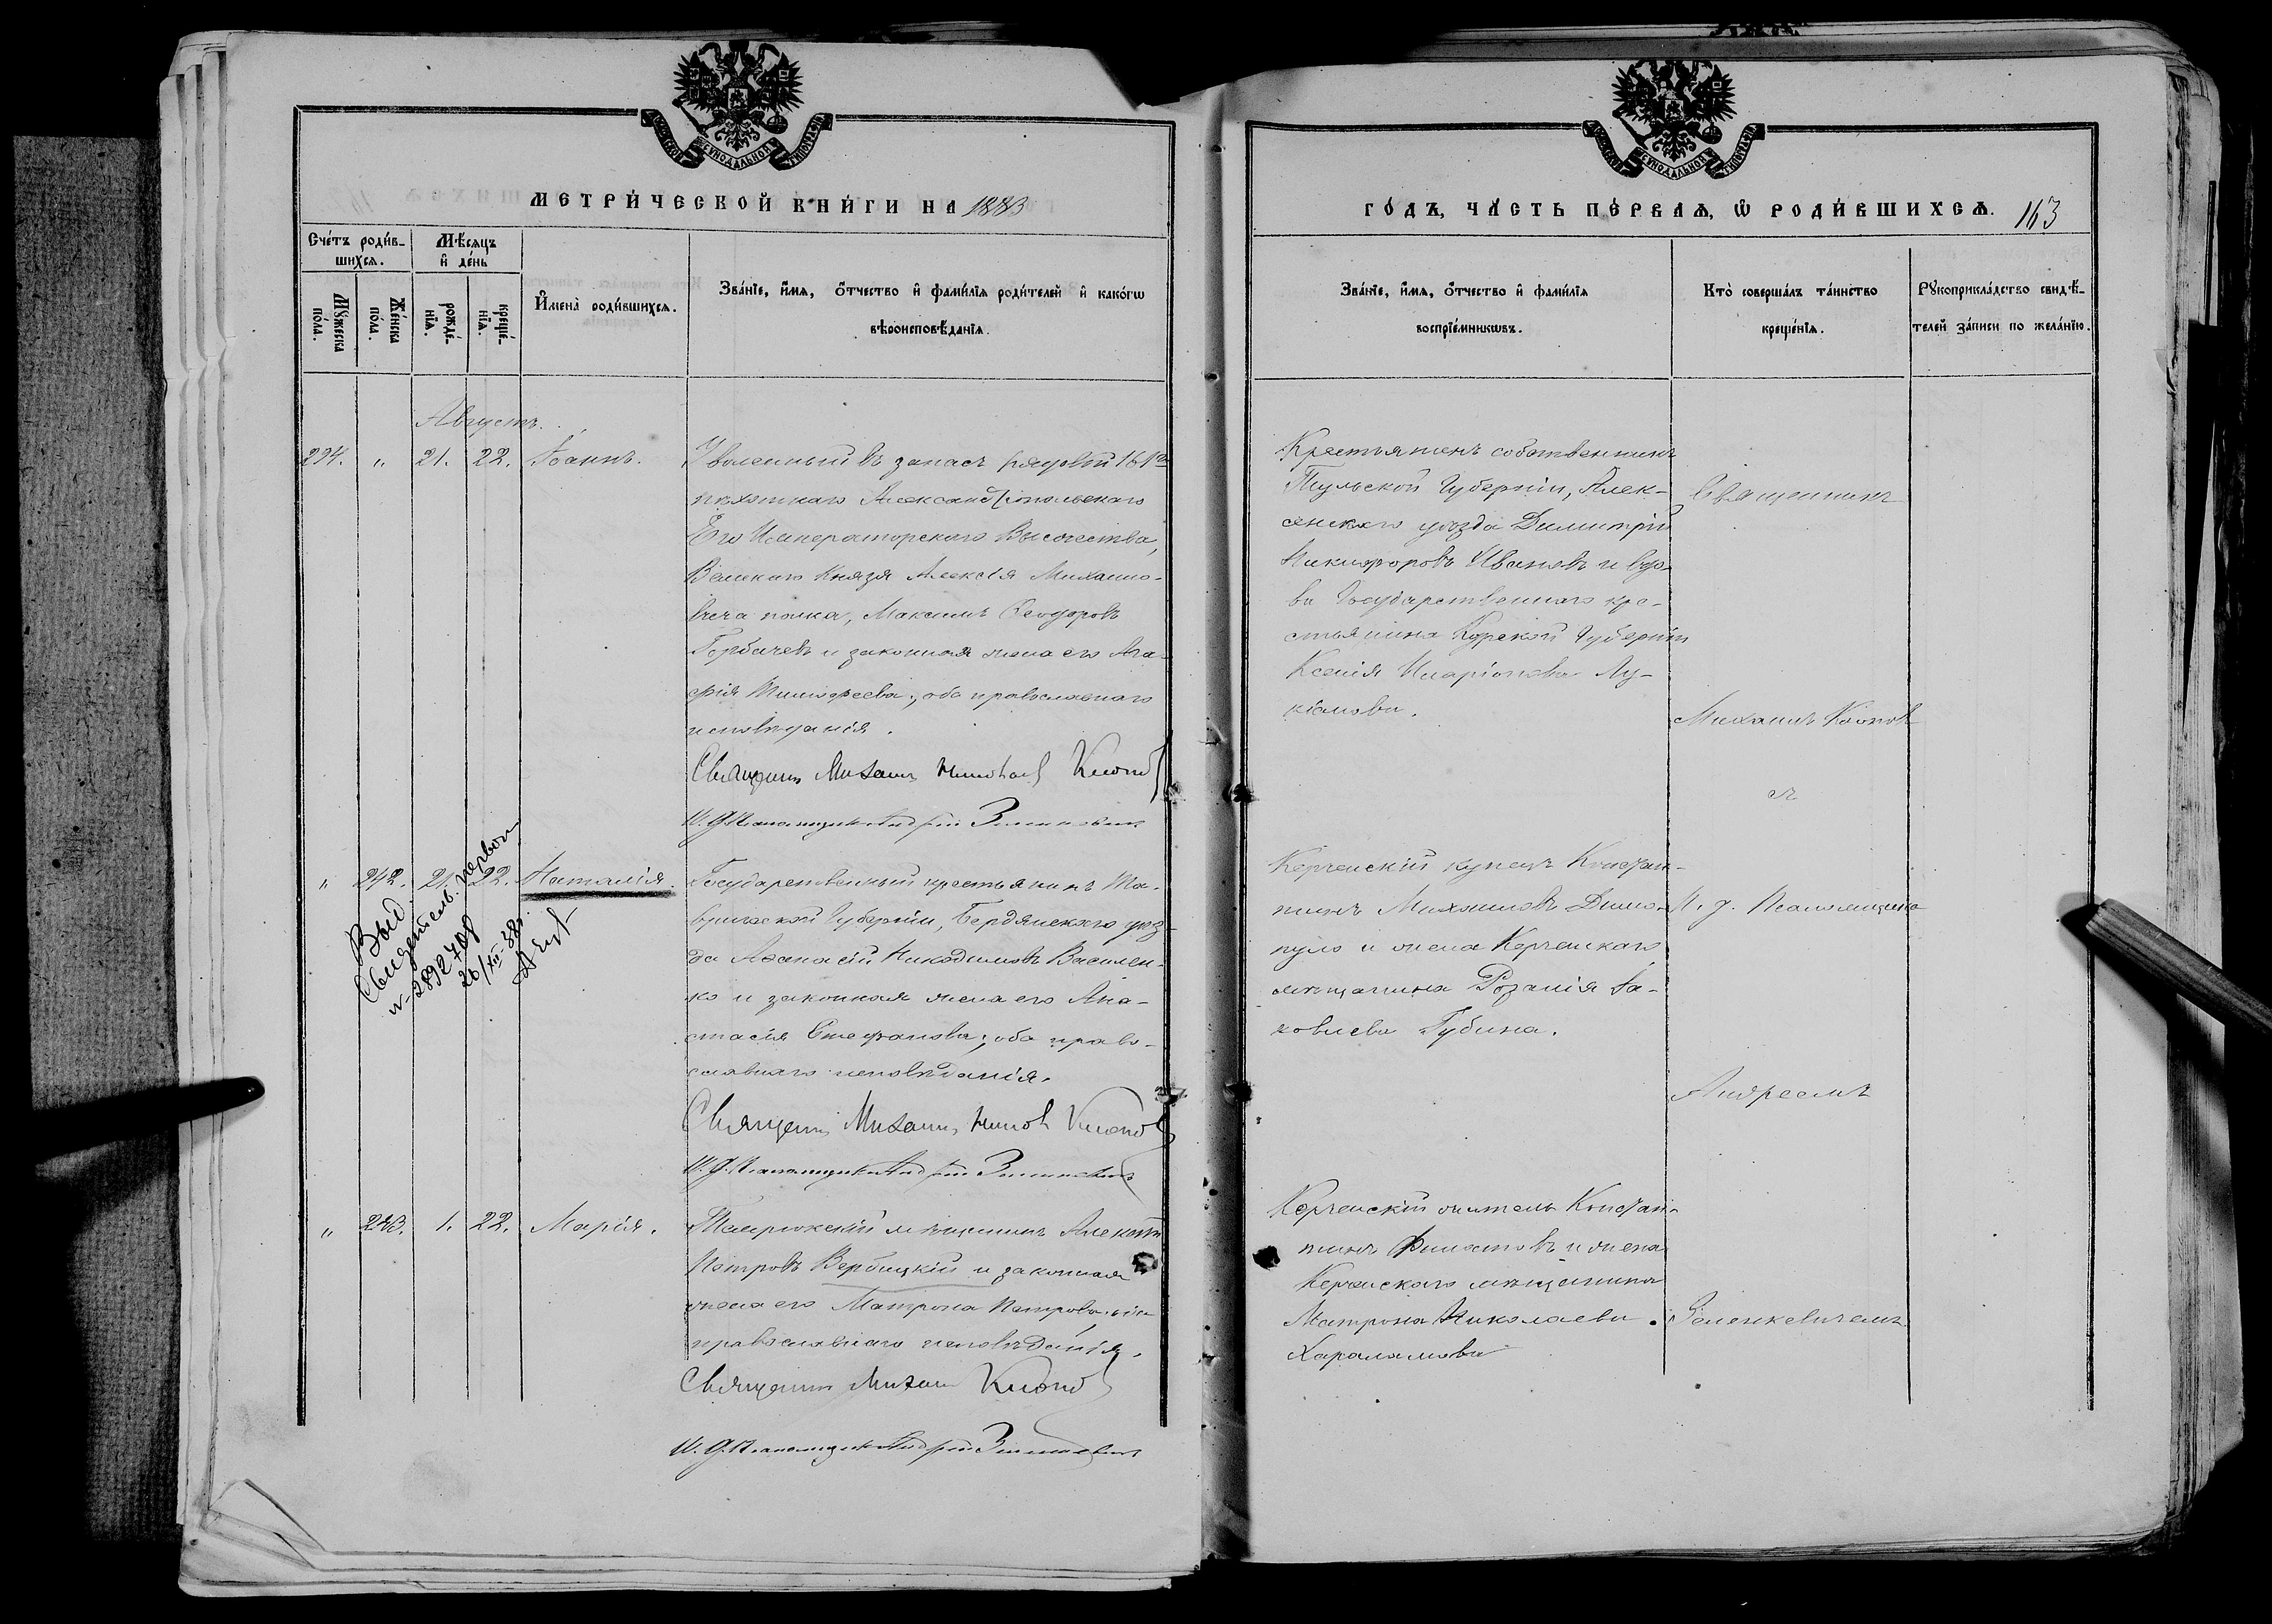 МЕТРИ́ЧЕСКОЙ КНИ́ГИ НА 1883
Сче́тъ роди́в-
шихся.
Мѣ́сяцъ
и҆ де́нь
Мꙋ́жеска
по́ла.
Же́нска
по́ла.
рожде́-
нїя.
креще́-
нїя.
И҆мена̀ роди́вшихся.
Зва́нїе, и҆́мя, ѻ҆́тчество и҆ фами́лїя роди́телей и҆ како́гѡ
вѣроисповѣ́данїя.
Августъ.
224. „ 21. 22. Іоаннъ.
Уволенный въ запасъ рядовой 161го
пѣхотнаго Александропольскаго
Его Императорскаго Высочества,
Великаго Князя Алексія Михаило-
вича полка, Максимъ Ѳеодоровъ
Горбачевъ и законная жена его Ага-
фія Тимофеева; оба православнаго
исповѣданія.
Священникъ Михаилъ Клоповъ
И. д. Псаломщика Андрей
„ 242. 21. 22. Наталія.
Государственный крестьянинъ Та-
врической Губерніи, Бердянскаго уѣз-
да Аѳанасій Никодимовъ Василен-
ко и законная жена его Ана-
стасія Стефанова; оба право-
славнаго исповѣданія.
Священникъ Михаилъ Клоповъ
И. д. Псаломщика Андрей
Выд.
Свидетель. первон
№ 289270
26/XII-38г.
„ 243. 1. 22. Марія.
Темрюкскій мѣщанинъ Алексѣй
Петровъ Вербицкій и законная
жена его Матрона Петрова; оба
православнаго исповѣданія.
Священникъ Михаилъ Клоповъ
И. д. Псаломщика Андрей
ГО́ДЪ, ЧА́СТЬ ПЕ́РВАЯ, Ѡ҆ РОДИ́ВШИХСЯ. 163
Зва́нїе, и҆́мя, ѻ҆́тчество и҆ фами́лїя
воспрїе́мникѡвъ.
Кто̀ соверша́лъ та́инство
креще́нїя.
Рꙋкоприкла́дство свидѣ́-
телей за́писи по жела́нїю.
Крестьянинъ собственникъ
Тульской Губерніи, Алек-
синскаго уѣзда Димитрій
Никифоровъ Ивановъ и вдо-
ва Государственнаго кре-
стьянина Курской Губерніи
Ксенія Иларіонова Лу-
кіанова.
Священникъ
Михаилъ Клоповъ
съ
Керченскій купецъ Констан-
тинъ Михаиловъ Димо-
пуло и жена Керченскаго
мѣщанина Розалія Іа-
ковлева Губина.
И. д. Псаломщика
Андреемъ
Керченскій житель Констан-
тинъ Филатовъ и жена
Керченскаго мѣщанина
Матрона Николаева
Хараламова
Зеленкевичемъ